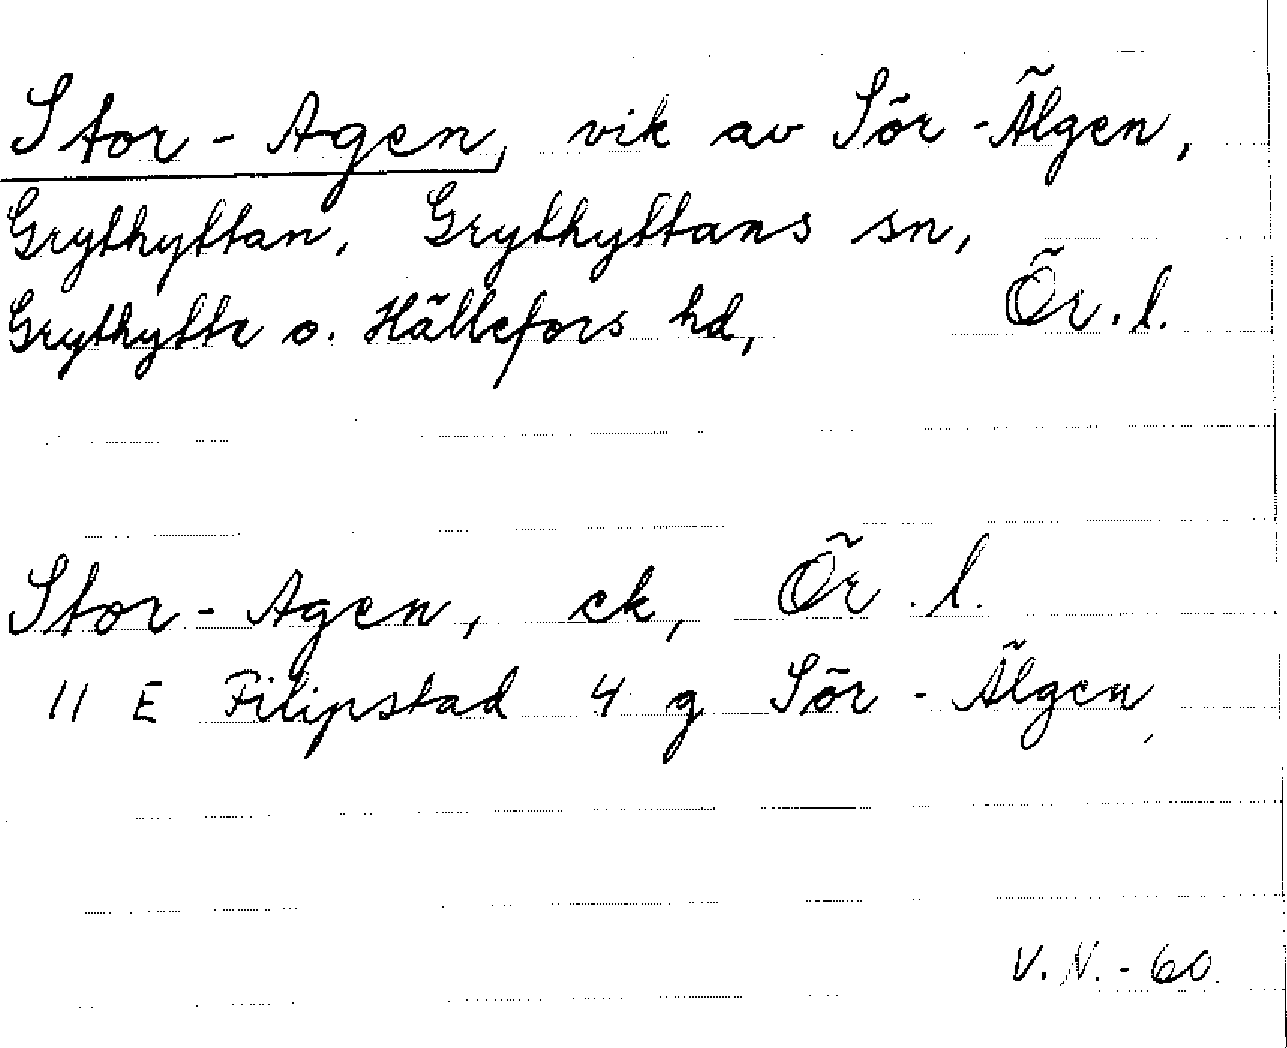 Stor-Agen, vik av Sör-Älgen,
Grythyttan, Grythyttans sn,
Grythytte o. Hällefors hd, Ör.l.
Stor-Agen, ek, Ör.l.
11 E Filipstad 4 g Sör-Älgen,
V.N.-60.